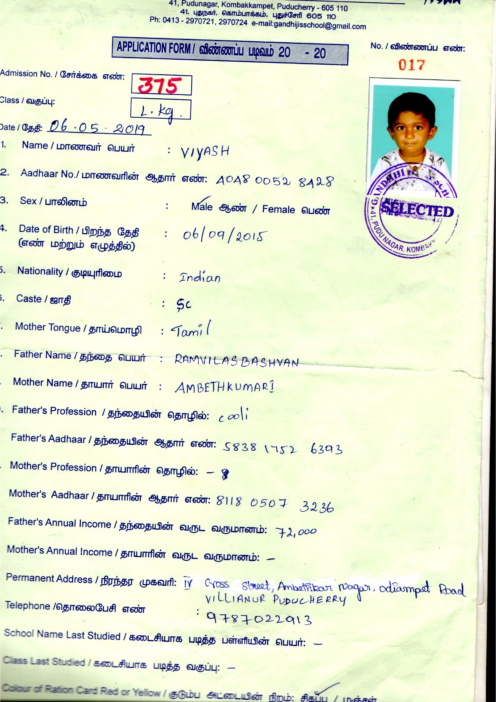 41, Pudunagar, Kombakkampet, Puducherry - 605 110
41, புதுநகர், கொம்பாக்கம், புதுச்சேரி 605 110
Ph: 0413 - 2970721, 2970724 e-mail:gandhijisschool@gmail.com
APPLICATION FORM / விண்ணப்ப படிவம் 20 - 20
No. / விண்ணப்ப எண்:
017
Admission No. / சேர்க்கை எண்: 375
Class / வகுப்பு: L.kg.
Date / தேதி: 06.05.2019
1. Name / மாணவர் பெயர் : VIYASH
2. Aadhaar No./ மாணவரின் ஆதார் எண்: 4048 0052 8428
3. Sex / பாலினம் : Male ஆண் / Female பெண்
SELECTED
4. Date of Birth / பிறந்த தேதி : 06/09/2015
(எண் மற்றும் எழுத்தில்)
5. Nationality / குடியுரிமை : Indian
Caste / ஜாதி : SC
Mother Tongue / தாய்மொழி : Tamil
Father Name / தந்தை பெயர் : RAMVILASBASHVAN
Mother Name / தாயார் பெயர் : AMBETHKUMARI
Father's Profession / தந்தையின் தொழில்: cooli
Father's Aadhaar / தந்தையின் ஆதார் எண்: 5838 1752 6393
Mother's Profession / தாயாரின் தொழில்: -
Mother's Aadhaar / தாயாரின் ஆதார் எண்: 8118 0507 3236
Father's Annual Income / தந்தையின் வருட வருமானம்: 72,000
Mother's Annual Income / தாயாரின் வருட வருமானம்: -
Permanent Address / நிரந்தர முகவரி: IV Cross Street, Ambethkar Nagar, Odiampet Road
VILLIANUR PUDUCHERRY
Telephone / தொலைபேசி எண் : 9787022913
School Name Last Studied / கடைசியாக படித்த பள்ளியின் பெயர்: -
Class Last Studied / கடைசியாக படித்த வகுப்பு: -
Colour of Ration Card Red or Yellow / குடும்ப அட்டையின் நிறம்: சிகப்பு / மஞ்சள்